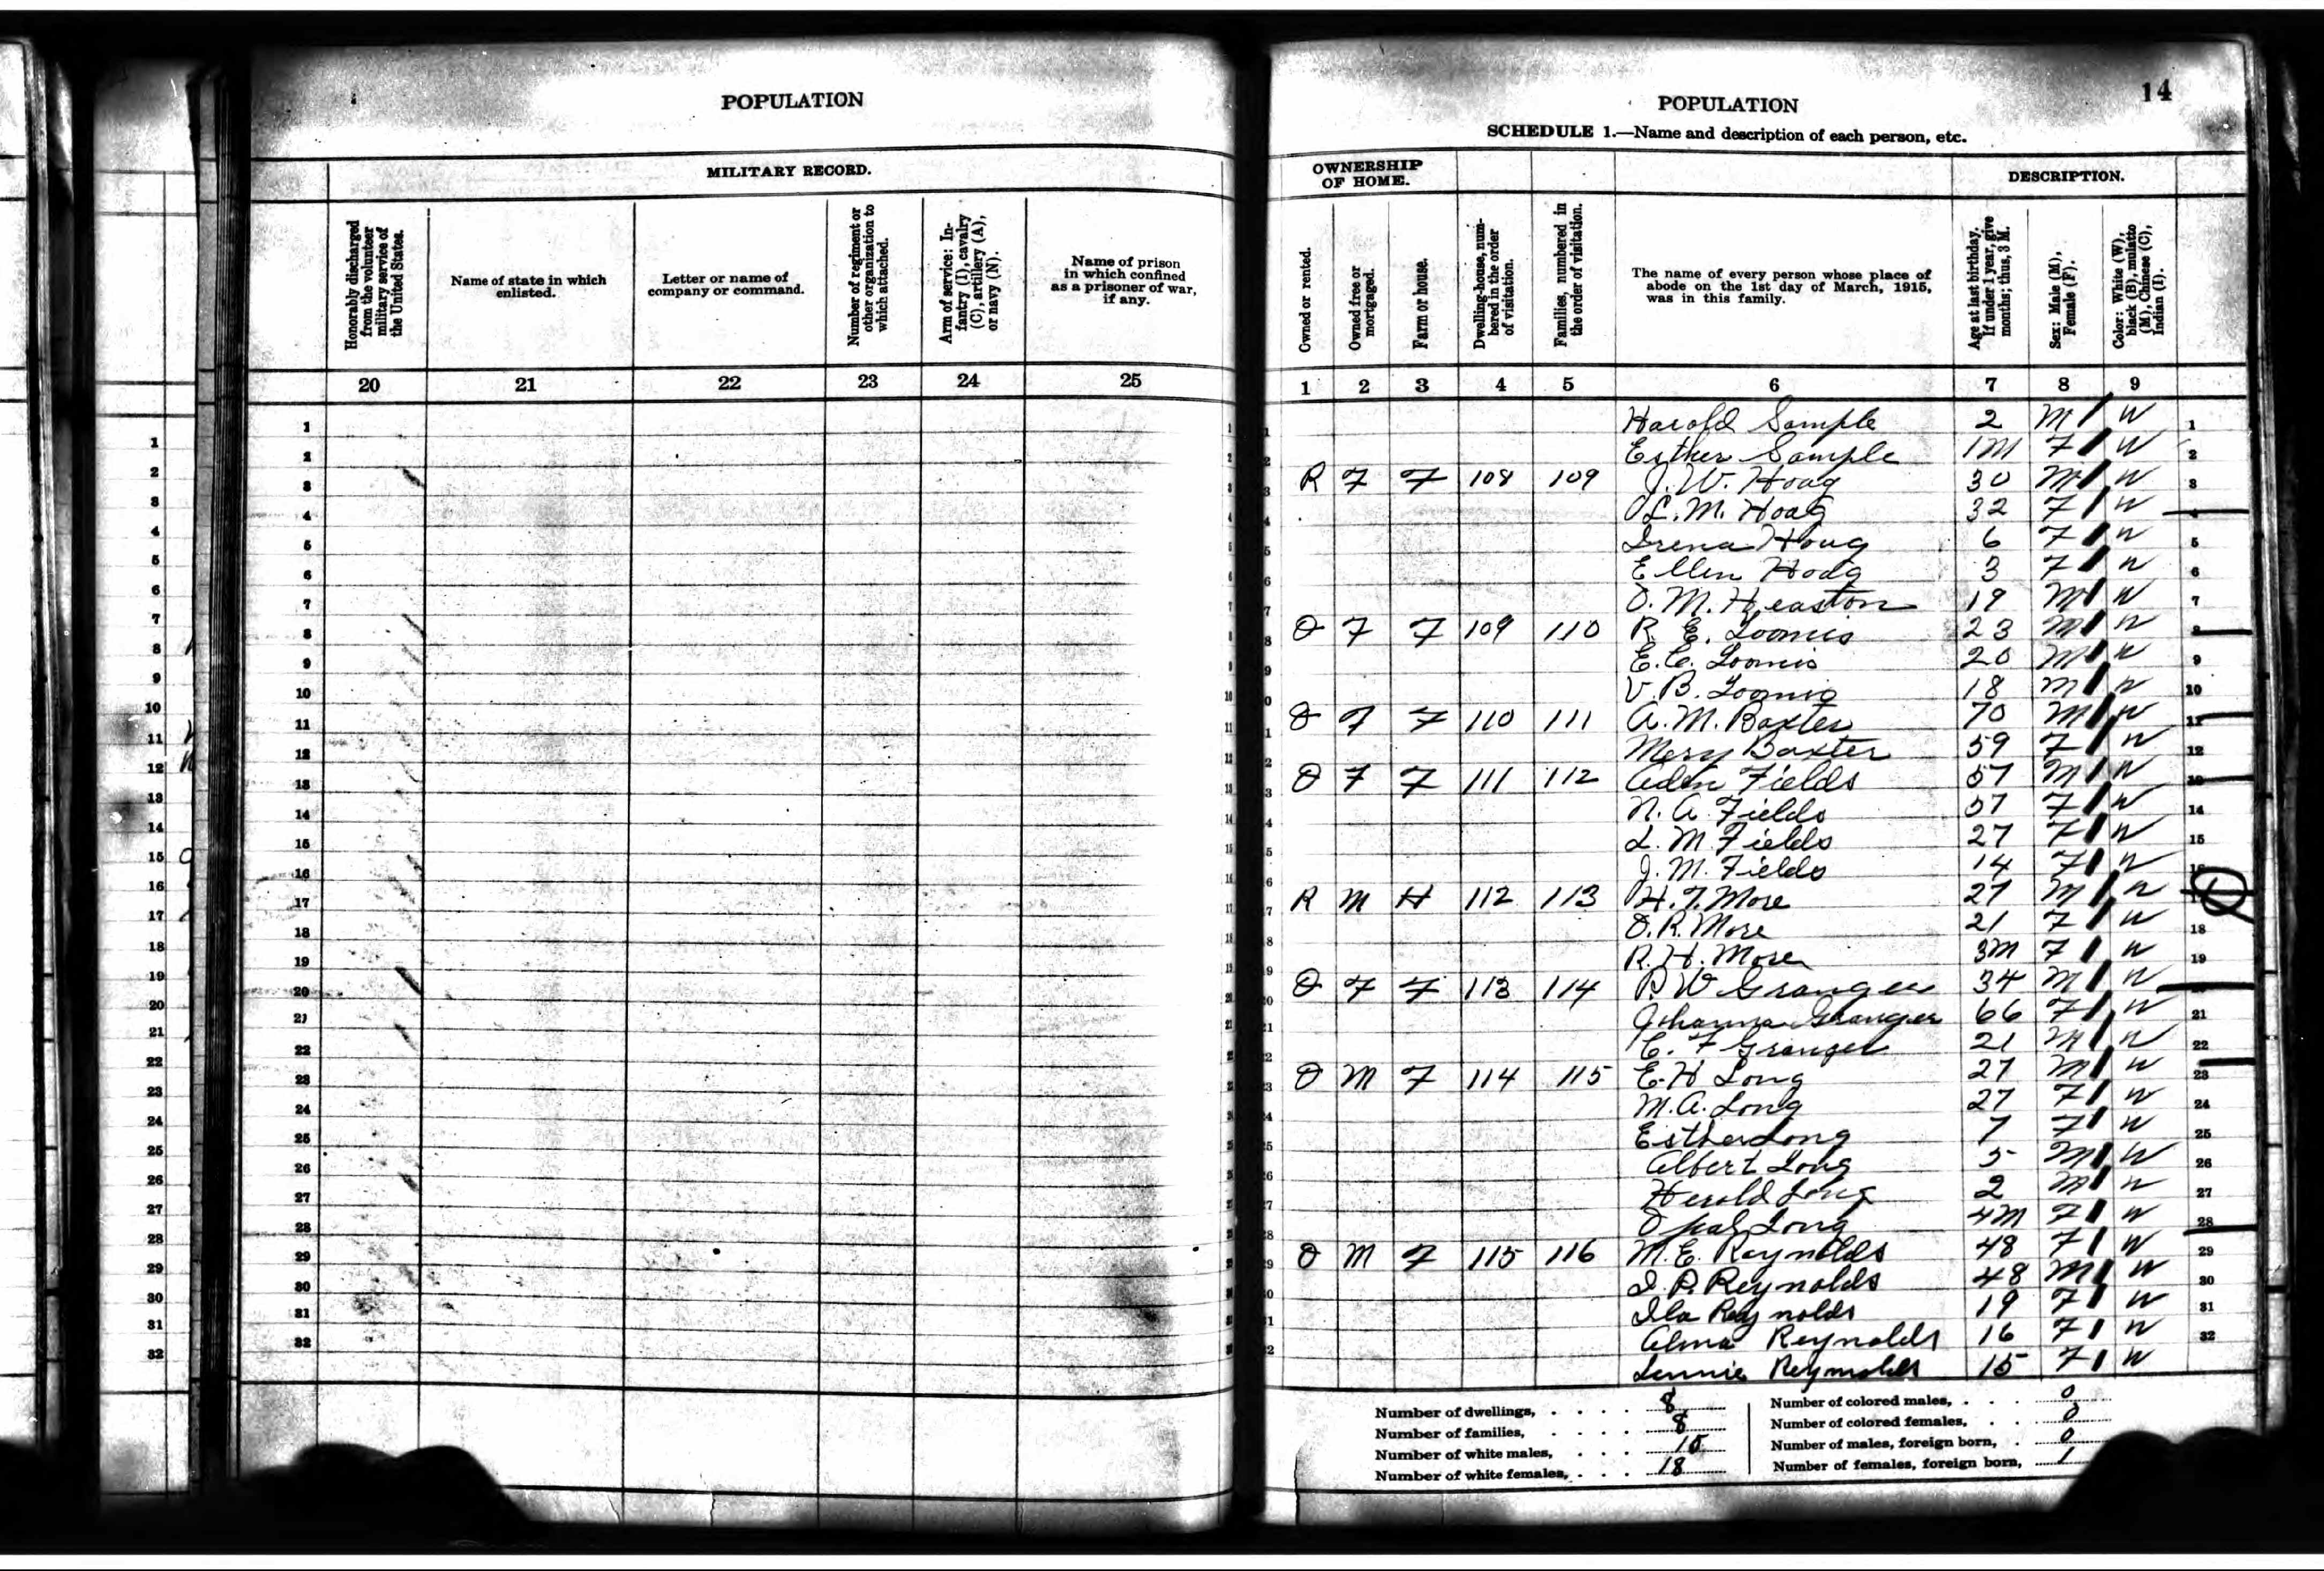 POPULATION
MILITARY RECORD.
Honorably discharged from the volunteer military service of the United States.
Name of state in which enlisted.
Letter or name of company or command.
Number of regiment or other organization to which attached.
Arm of service: Infantry (I), cavalry (C), artillery (A), or navy (N).
Name of prison in which confined as a prisoner of war, if any.
20 21 22 23 24 25
1
2
3
4
5
6
7
8
9
10
11
12
13
14
15
16
17
18
19
20
21
22
23
24
25
26
27
28
29
30
31
32
14
POPULATION
SCHEDULE 1.—Name and description of each person, etc.
OWNERSHIP OF HOME.
DESCRIPTION.
Owned or rented.
Owned free or mortgaged.
Farm or house.
Dwelling-house, numbered in the order of visitation.
Families, numbered in the order of visitation.
The name of every person whose place of abode on the 1st day of March, 1915, was in this family.
Age at last birthday. If under 1 year, give months; thus, 3 M.
Sex: Male (M), Female (F).
Color: White (W), black (B), mulatto (M), Chinese (C), Indian (I).
1 2 3 4 5 6 7 8 9
Harold Sample 2 M W 1
Esther Sample 1M F W 2
R F F 108 109 J. W. Hoag 30 M W 3
L. M. Hoag 32 F W 4
Irena Hoag 6 F W 5
Ellen Hoag 3 F W 6
O. M. Heaston 19 M W 7
O F F 109 110 R. E. Loomis 23 M W 8
E. E. Loomis 20 M W 9
V. B. Loomis 18 M W 10
O F F 110 111 A. M. Baxter 70 M W 11
Mery Baxter 59 F W 12
O F F 111 112 Aden Fields 57 M W 13
N. A. Fields 57 F W 14
L. M. Fields 27 F W 15
J. M. Fields 14 F W 16
R M H 112 113 H. T. More 27 M W
O. R. More 21 F W 18
R. H. More 3M F W 19
O F F 113 114 P. W Granger 34 M W
Johanna Granger 66 F W 21
E. F Granger 21 M W 22
O M F 114 115 E. H Long 27 M W 23
M. A. Long 27 F W 24
Esther Long 7 F W 25
Albert Long 5 M W 26
Herold Long 2 M W 27
Opal Long 4M F W 28
O M F 115 116 M. E. Reynolds 48 F W 29
I. P. Reynolds 48 M W 30
Ila Reynolds 19 F W 31
Alma Reynolds 16 F W 32
Lennie Reynolds 15 F W
Number of dwellings, 8 Number of colored males, 0
Number of families, 8 Number of colored females, 0
Number of white males, 15 Number of males, foreign born, 0
Number of white females, 18 Number of females, foreign born, 1